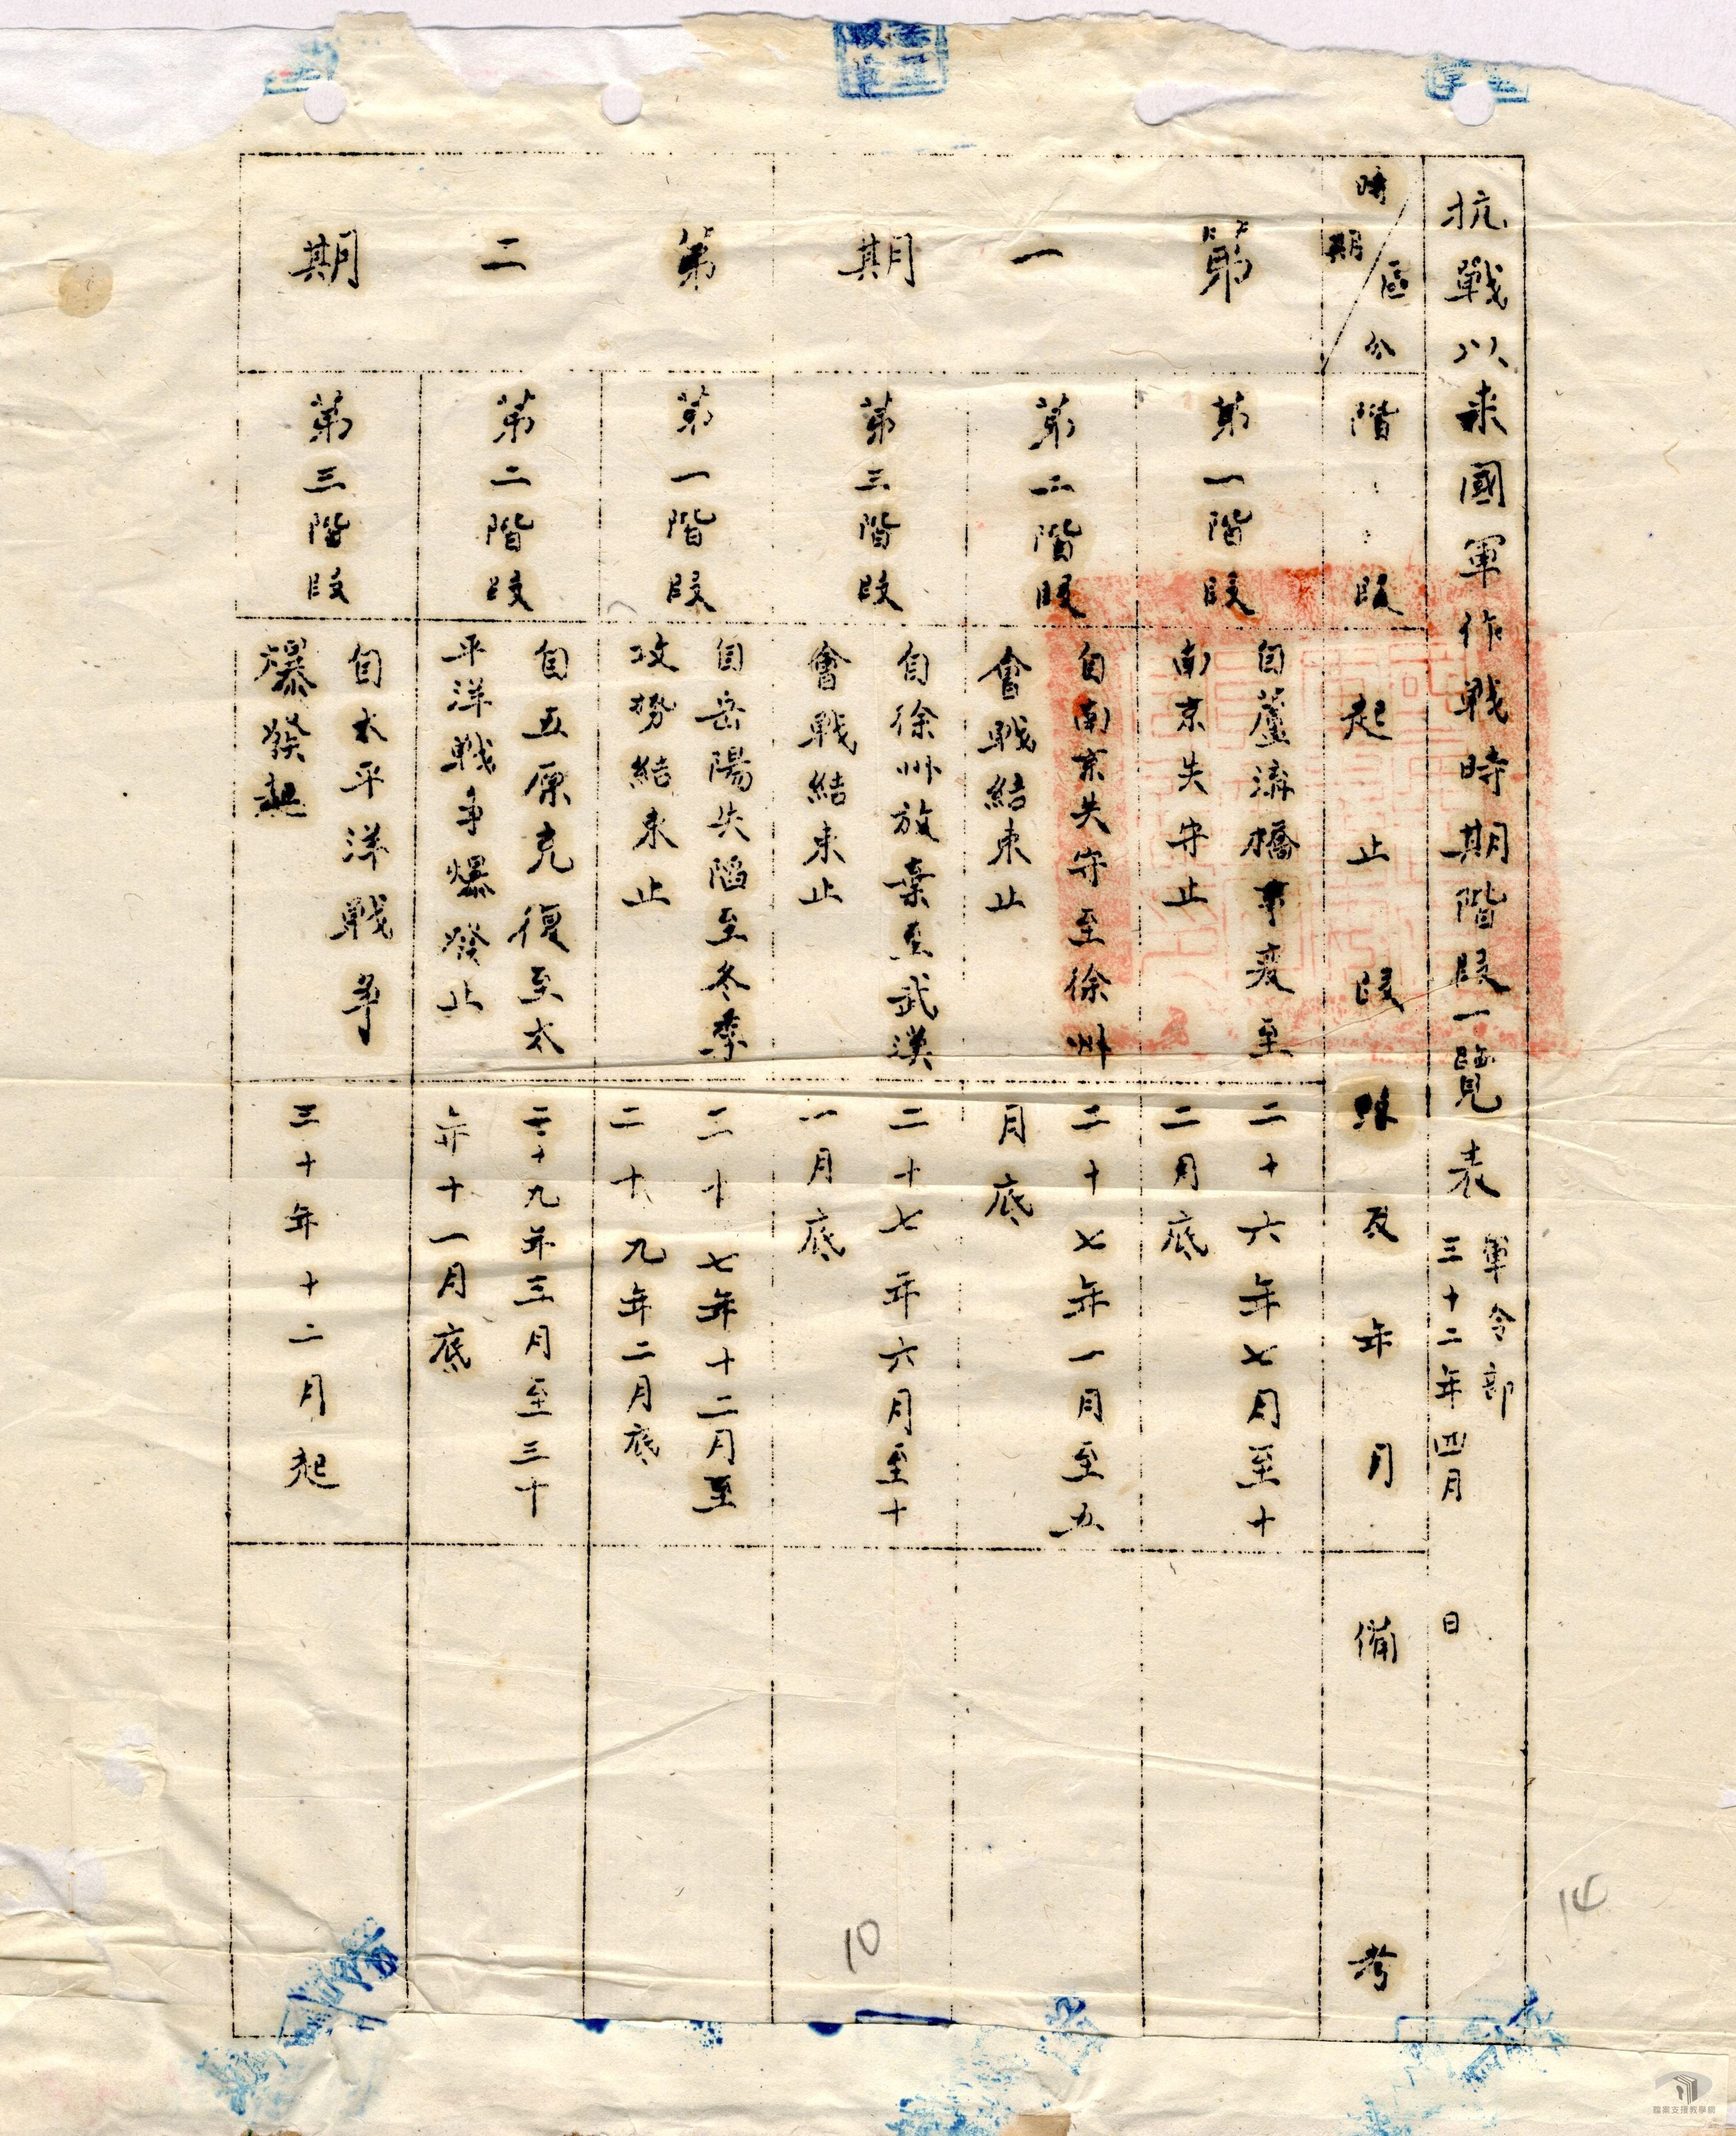 抗戰以來國軍作戰時期階段一覽表
軍令部
三十二年四月 日
時期 區分
階段
起止
段
年月
備考
第一期
第一階段
自蘆溝橋事變至
南京失守止
二十六年七月至十
二月底
第二階段
自南京失守至徐州
會戰結束止
二十七年一月至五
月底
第三階段
自徐州放棄至武漢
會戰結束止
二十七年六月至十
一月底
第二期
第一階段
自岳陽失陷至冬季
攻勢結束止
二十七年十二月至
二十九年二月底
第二階段
自五原克復至太
平洋戰爭爆發止
二十九年三月至三十
年十一月底
第三階段
自太平洋戰爭
爆發起
三十年十二月起
10
14
檔案支援教學網